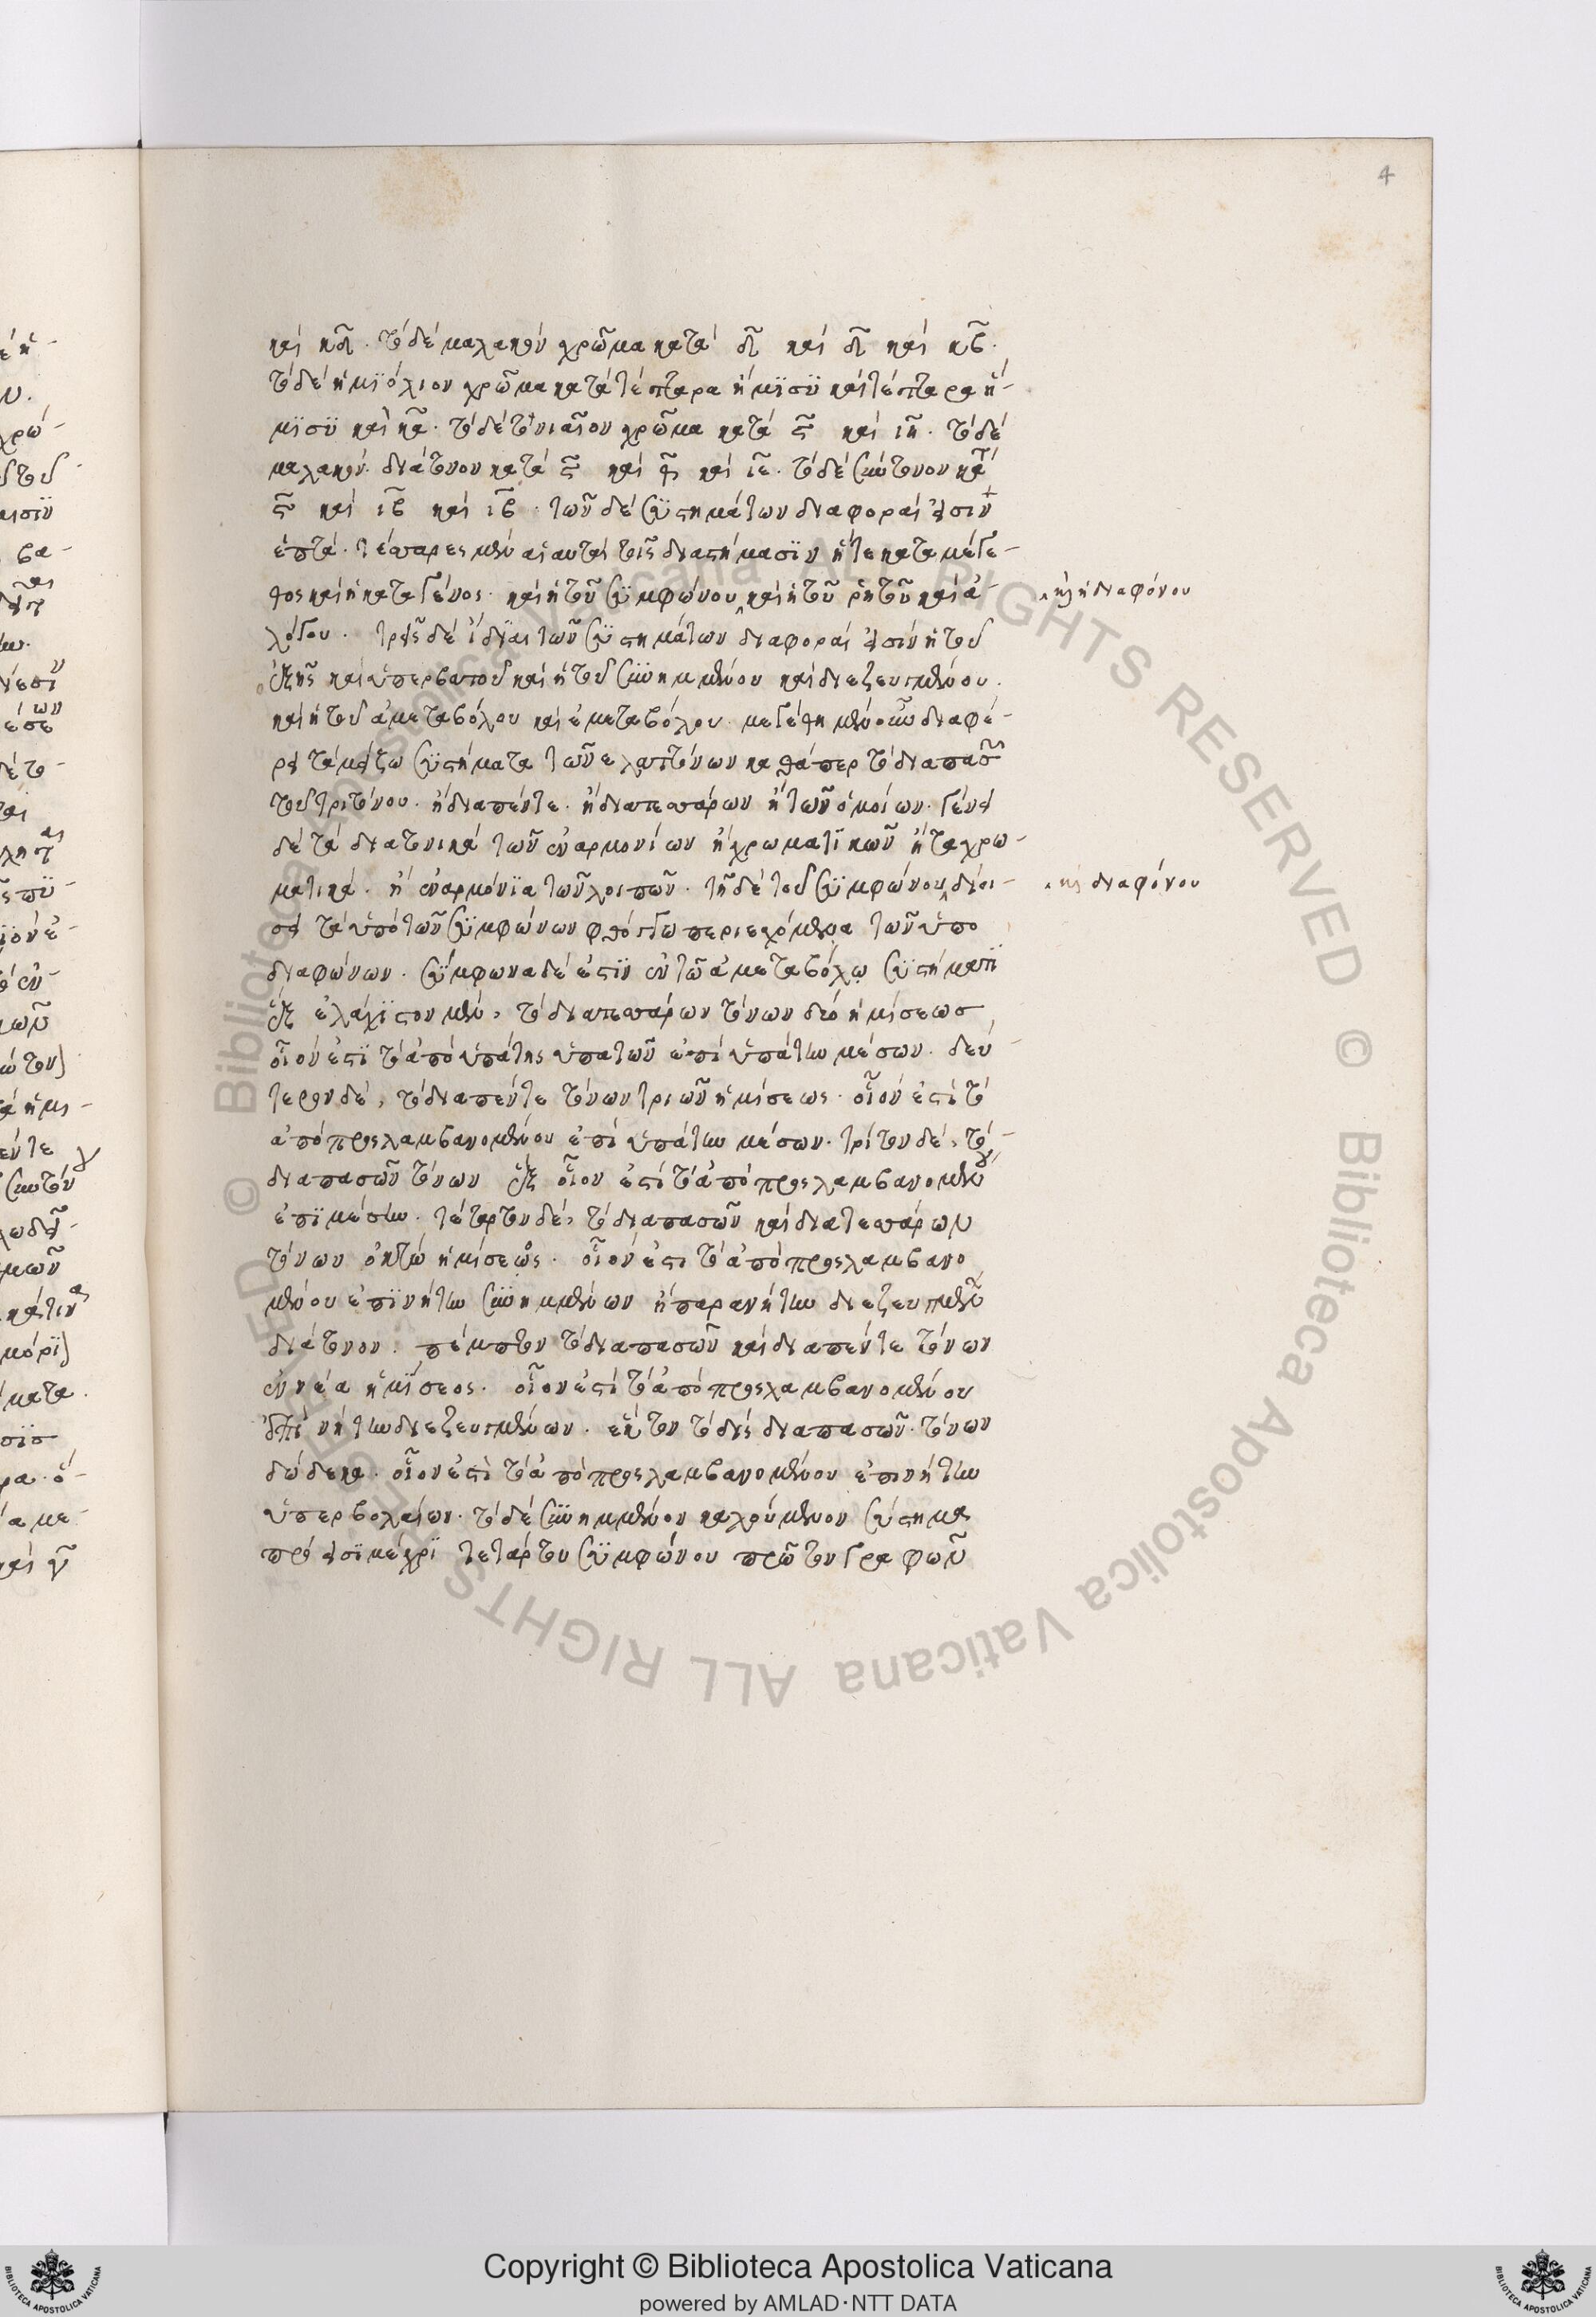 4
καὶ κδ. τὸ δὲ μαλακὸν χρῶμα κατὰ δ καὶ δ καὶ κβ.
τὸ δὲ ἡμϊόλιον χρῶμα κατὰ τέσταρα ἥμϊσϋ καὶ τέσταρα ἥ-
μϊσϋ καὶ κα. τὸ δὲ τονιαῖον χρῶμα κατὰ ς καὶ ιη. τὸ δὲ
μαλακὸν διάτονον κατὰ ς καὶ θ καὶ ιε. τὸ δὲ σύντονον κατὰ
ς καὶ ιβ καὶ ιβ. τῶν δὲ σϋστημάτων διαφοραί εἰσιν
ἑπτά. τέσσαρες μὲν αἱ αὐταὶ τοῖς διαστήμασϊν ἥ τε κατὰ μέγε-
θος καὶ ἡ κατὰ γένος. καὶ ἡ τοῦ σϋμφώνου καὶ ἡ τοῦ ῥητοῦ καὶ ἀ-
‸ καὶ ἡ διαφόνου
λόγου. τρεῖς δὲ ἰδίαι τῶν σϋστημάτων διαφοραί εἰσὶν ἡ τοῦ
ἑξῆς καὶ ὑπερβατοῦ καὶ ἡ τοῦ σϋνημμένου καὶ διεζευγμένου.
καὶ ἡ τοῦ ἀμεταβόλου καὶ ἐμεταβόλου. μεγέθη μὲν οὖν διαφέ-
ρει τὰ μείζω σϋστήματα τῶν ελαττόνων καθάπερ τὸ διαπασῶν
τοῦ τριτόνου. ἢ διαπέντε. ἢ διατεσσάρων ἢ τῶν ὁμοίων. γένει
δὲ τὰ διατονικὰ τῶν ἐναρμονίων ἢ χρωματϊκῶν ἢ τα χρω-
ματικὰ. ἢ ἐναρμόνϊα τῶν λοιπῶν. τῇ δὲ τοῦ σϋμφώνου διοί-
‸ καὶ διαφόνου
σει τὰ ὑπὸ τῶν σϋμφώνων φθόγγω περιεχόμενα τῶν ὑπο
διαφώνων. σϋμφωνα δέ ἐστϊν ἐν τῶ ἀμεταβόλῳ σϋστήματϊ
ἓξ ἐλάχϊστον μὲν, τὸ διατεσσάρων τόνων δύο ἡμίσεως
οἷόν ἐστϊ τὸ ἀπὸ ὑπάτης ὑπατῶν ἐπὶ ὑπάτην μέσων. δεύ-
τερον δὲ, τὸ διαπέντε τόνων τριῶν ἡμίσεως. οἷόν ἐστὶ τὸ
ἀπὸ προςλαμβανομένου ἐπὶ ὑπάτην μέσων. τρίτον δὲ, τὸ-
διαπασῶν τόνων ἓξ οἷον ἐστὶ τὸ ἀπὸ προςλαμβανομένου
ἐπϊ μέσην. τέταρτον δὲ, τὸ διαπασῶν καὶ διατεσσάρων
τόνων ὀκτώ ἡμίσεως. οἷόν ἐστι τὸ ἀπὸ προςλαμβανο
μένου ἐπϊ νήτην σϋνημμένων ἢ παρανήτην διεζευγμένων
διάτονον. πέμπτον τὸ διαπασῶν καὶ διαπέντε τόνων
ἐννέα ἡμίσεος. οἷον ἐστὶ τὸ ἀπὸ προςλαμβανομένου
ἐπὶ νήτην διεζευγμένων. ἕκτον τὸ δὶς διαπασῶν. τόνων
δώδεκα. οἷον ἐστὶ τὸ ἀπὸ προςλαμβανομένου ἐπι νήτην
ὑπερβολαίων. τὸ δὲ σϋνημμένον καλούμενον σύστημα
πρόεισϊ μέχρϊ τετάρτου σϋμφώνου πρῶτον γραφων
Copyright © Biblioteca Apostolica Vaticana
powered by AMLAD·NTT DATA